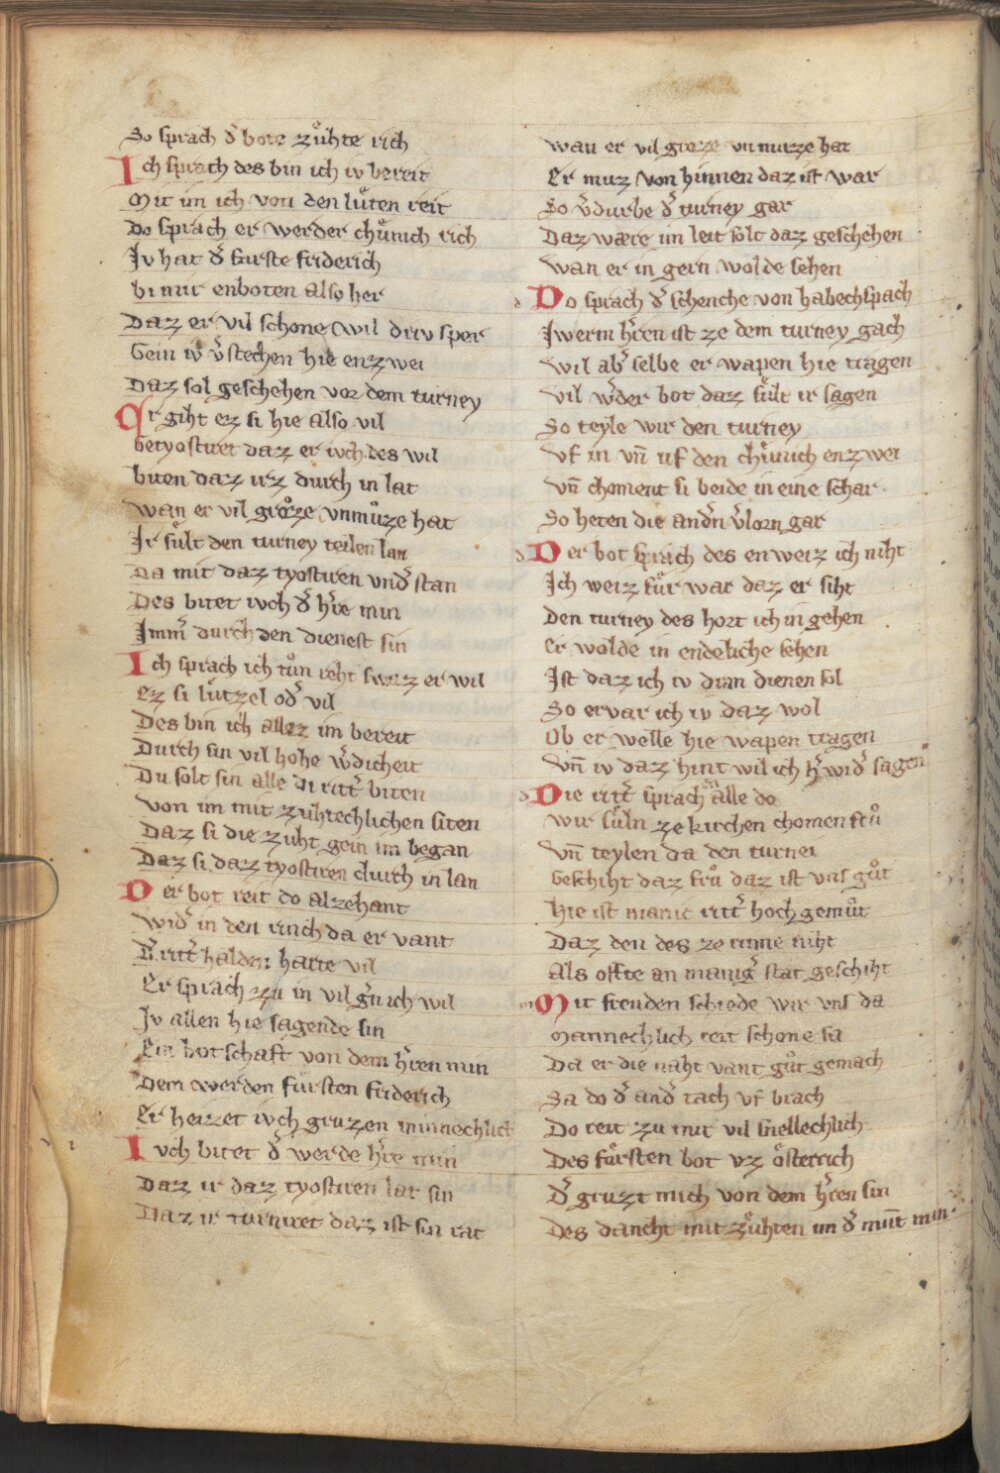 So sprach d͛ bote zuͦhte rich
Ich sprach des bin ich iv bereit
Mit im ich von den luͤten reit
Do sprach er werder chuͤnich rich
Jv hat d͛ furste friderich
bi mir enboten also her
Daz er vil schone wil driv sper
Gein iv v͛stechen hie enzwei
Daz sol geschehen vor dem turney
Er giht ez si hie also vil
Getyostiret daz er ivch des wil
biten daz irz durch in lat
wan er vil groͤze vnmuͤze hat
Jr suͤlt den turney teilen lan
Da mit daz tyostiren vnd͛ stan
Des bitet ivch d͛ h͛re min
Jmm͛ durch den dienest sin
Ich sprach ich tuͦn reht swaz er wil
Ez si luͤtzel od͛ vil
Des bin ich allez im bereit
Durch sin vil hohe w͛dicheit
Du solt sin alle di ritt͛ biten
von im mit zuhtechlichen siten
Daz si die zuht gein im began
Daz si daz tyostiren durch in lan
Der bot reit do alzehant
wid͛ in den rinch da er vant
D͛ ritt͛ halden harte vil
Er sprach zu in vil g͛n ich wil
Jv allen hie sagende sin
Ein botschaft von dem h͛ren min
Dem werden fursten friderich
Er heizet ivch gruzen minnechlich
Ivch bitet d͛ werde h͛re min
Daz ir daz tyostiren lat sin
Daz ir turniret daz ist sin rat
wan er vil groze vnmuze hat
Er muz von hinnen daz ist war
So v͛durbe d͛ turney gar
Daz wære im leit solt daz geschehen
wan er in gern wolde sehen
Do sprach d͛ schenche von habechspach
Jwerm h͛ren ist ze dem turney gach
wil ab͛ selbe er wapen hie tragen
vil w͛der bot daz suͤlt ir sagen
So teyle wir den turney
vf in vn̄ uf den chuͤnich enzwei
vn̄ choment si beide in eine schar
So heten die and͛n v͛lorn gar
Der bot sprach des enweiz ich niht
Ich weiz fuͤr war daz er siht
Den turney des hort ich in gehen
Er wolde in endeliche sehen
Jst daz ich iv dran dienen sol
So ervar ich iv daz wol
Ob er welle hie wapen tragen
vn̄ iv daz hint wil ich h͛ wid͛ sagen
Die ritt͛ sprachen alle do
wir suͤln ze kirchen chomen fruͦ
vn̄ teylen da den turnei
Geschiht daz fruͦ daz ist vns guͦt
Hie ist manic ritt͛ hoch gemuͦt
Daz den des ze rinne niht
Als offte an manig͛ stat geschiht
Mit freuden schiede wir vns da
Mannechlich reit schone sa
Da er die naht vant guͦt gemach
Sa do d͛ and͛ tach vf brach
Do reit zu mir vil snellechlich
Des fuͤrsten bot vz oͤsterrich
D͛ gruzt mich von dem h͛ren sin
Des dancht mit zuͤhten im d͛ mūt min